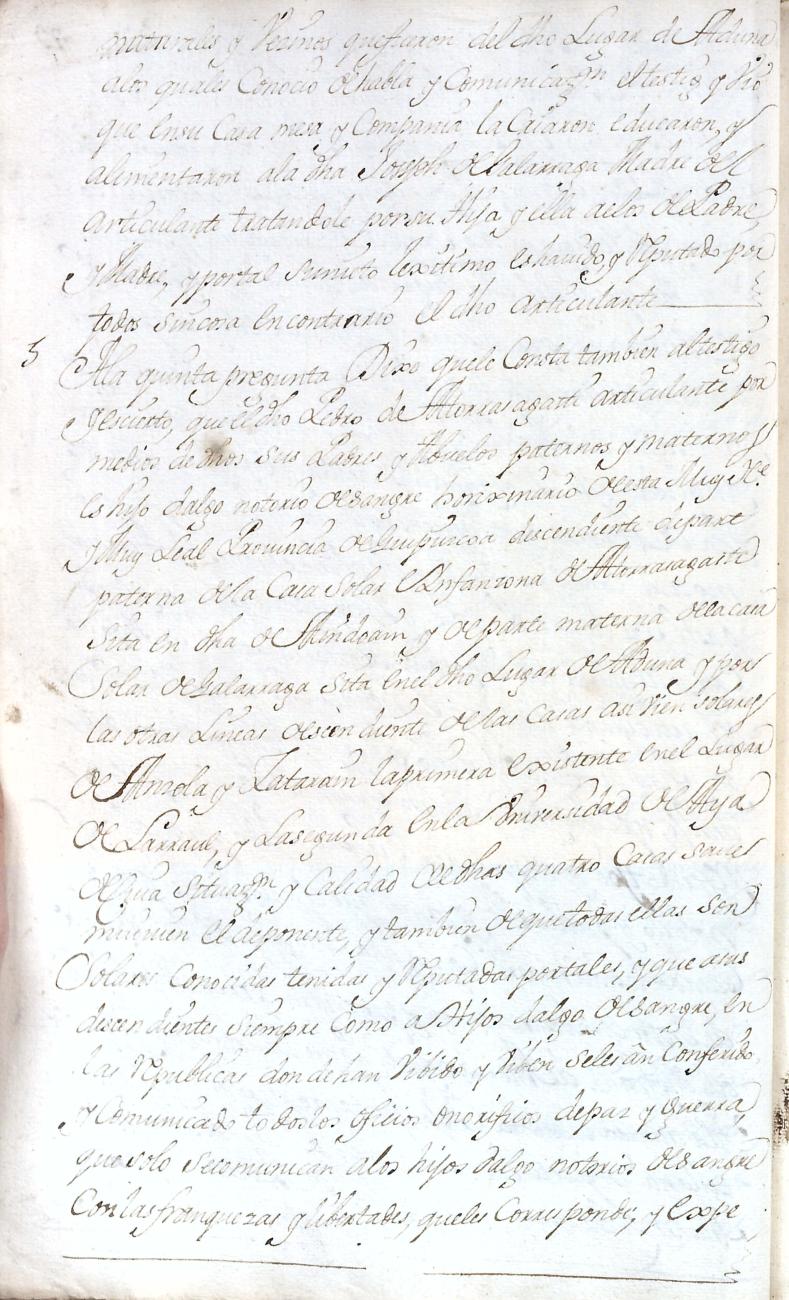 naturales y Vecinos que fueron del dho Lugar de Aduna
alos quales Conocio de habla y Comunicazon. el testigo y vio
que en su Casa mesa y Compania la Criaron, educaron, y
alimentaron ala dha Joseph de Galarraga Madre del
articulante tratandole por su Hija y ella aelos de Padre,
y Madre, y por tal su nieto lexitimo es havido, y Reputado por
todos sin cosa en contrario el dho articulante
5
Ala quinta pregunta Dixo que le Consta tambien al testigo
y es cierto, que el dho Pedro de Atorrasagasti articulante por
medios de dhos sus Padres y Abuelos paternos y maternos
es hijo dalgo notorio de sangre horixinario de esta Muy Ne.
y Muy Leal Provincia de Guipuzcoa descendiente de parte
paterna de la Casa Solar e Infanzona de Atorrasagasti
Sita en dha de Andoain y de parte materna de la casa
Solar de Galarraga Sita en el dho Lugar de Aduna y por
las otras Lineas descendiente de las Casas asi vien solares
de Anzola y Zatarain la primera existente en el Lugar
de Larraul, y La segunda en la Universidad de Aya
de cuia Situazon. y Calidad de dhas quatro Casas save
mui vien el deponente, y tambien de que todas ellas Son
Solares Conocidas tenidas y Reputadas por tales, y que a sus
descendientes siempre Como a Hijos dalgo de sangre, en
las Republicas donde han Vibido y Viben se les an Conferido,
y Comunicado todos los oficios onorificos de paz y Guerra,
que solo se comunican a los hijos dalgo notorios de sangre
Con las franquezas y libertades, que les Corresponde, y expe